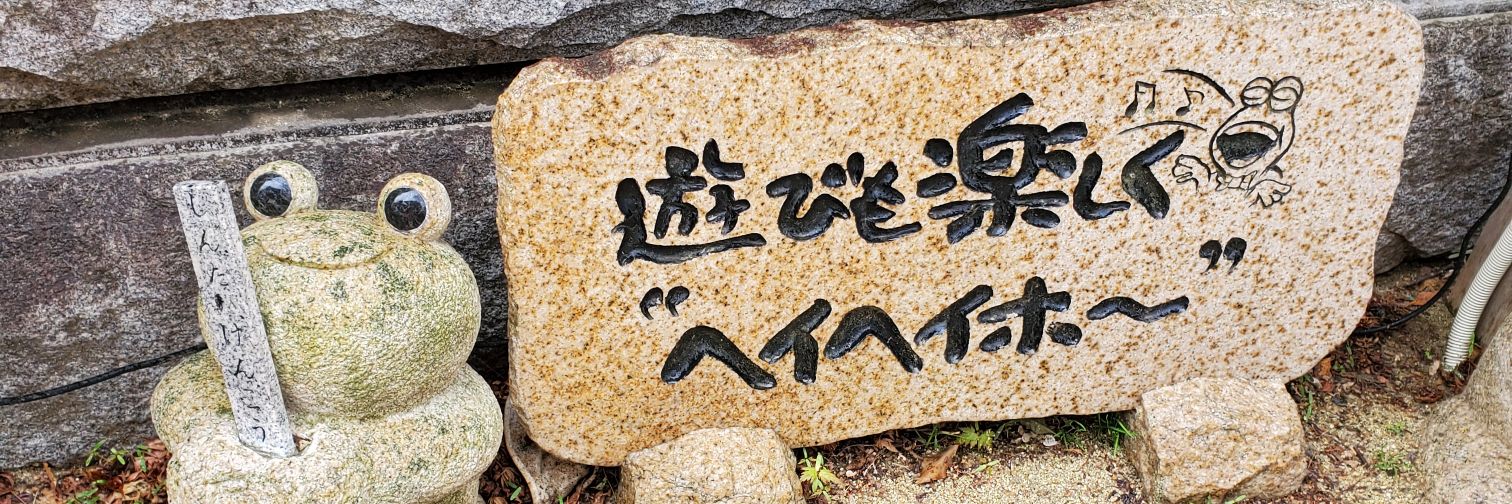 しんたいけんこう
遊びも楽しく
“ヘイヘイホ〜”